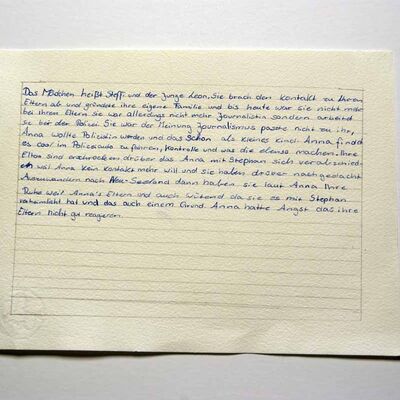 Das Mädchen heißt Steffi und der Junge Leon. Sie brach den Kontakt zu Ihren
Eltern ab und gründete ihre eigene Familie und bis heute war sie nicht mehr
bei ihren Eltern sie war allerdings nicht mehr Journalistin sondern arbeitet
sie bei der Polizei. Sie war der Meinung Journalismus passte nicht zu ihr,
Anna wollte Polizistin werden und das schon als kleines Kind. Anna findet
es cool im Polizeiauto zu fahren, Kontrolle und was die ebenso machen. Ihre
Eltern sind erschrocken drüber das Anna mit Stephan sich verabschiedet
weil Anna kein Kontakt mehr will und sie haben drüver nachgedacht
Auszuwandern nach Neu-Seeland dann haben sie laut Anna Ihre
Ruhe weil Anna's Eltern und auch wütend da sie es mit Stephan
verheimlicht hat und das auch einem Grund. Anna hatte Angst das ihre
Eltern nicht gut reagieren.